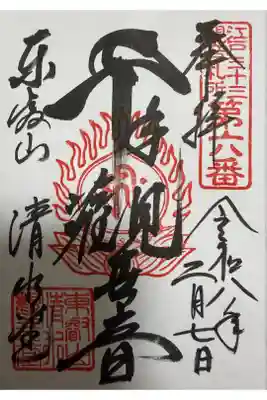 奉拝
江戸三十三
観音札所
第六番
千手觀世音
令和八年
二月七日
東叡山
清水堂